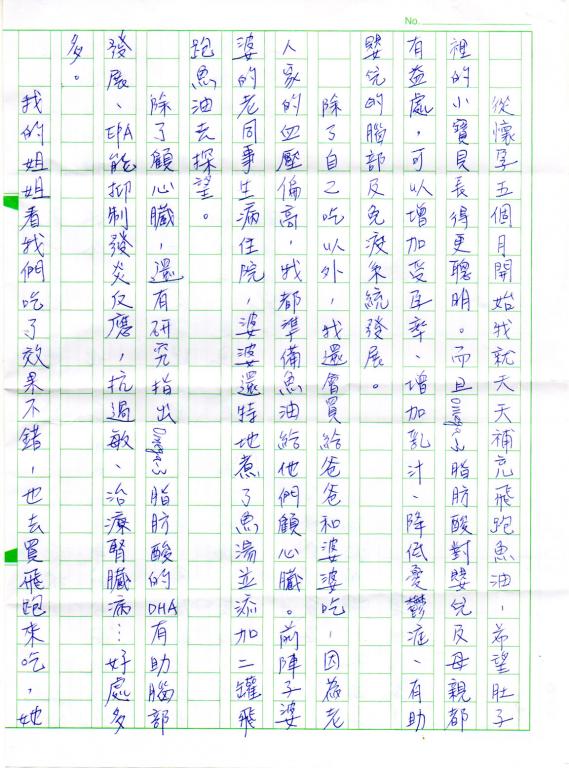 No.
從懷孕五個月開始我就天天補充飛跑魚油,希望肚子
裡的小寶貝長得更聰明。而且Omega-3脂肪酸對嬰兒及母親都
有益處,可以增加受孕率、增加乳汁、降低憂鬱症、有助
嬰兒的腦部及免疫系統發展。
除了自己吃以外,我還會買給爸爸和婆婆吃,因為老
人家的血壓偏高,我都準備魚油給他們顧心臟。前陣子婆
婆的老同事生病住院,婆婆還特地煮了魚湯並添加二罐飛
跑魚油去探望。
除了顧心臟,還有研究指出Omega-3脂肪酸的DHA有助腦部
發展、EPA能抑制發炎反應,抗過敏、治療腎臟病…好處多
多。
我的姐姐看我們吃了效果不錯,也去買飛跑來吃,她